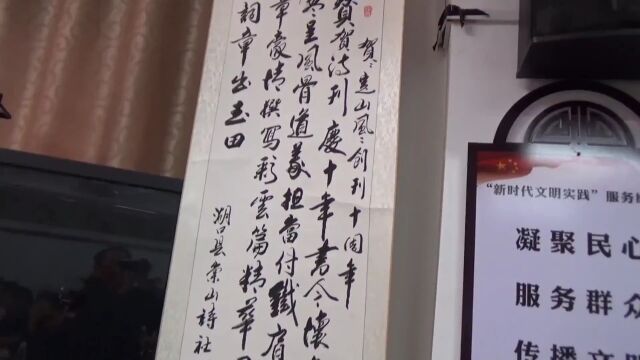 賀山風創刊十周年
賀詩刊慶十年書今懷
呈風骨道義担當付鐵肩
章豪情撰寫彩雲篇精華
詞章出玉田
湖口县山詩社
“新时代文明实践”服务
凝聚民心
服务群众
传播文